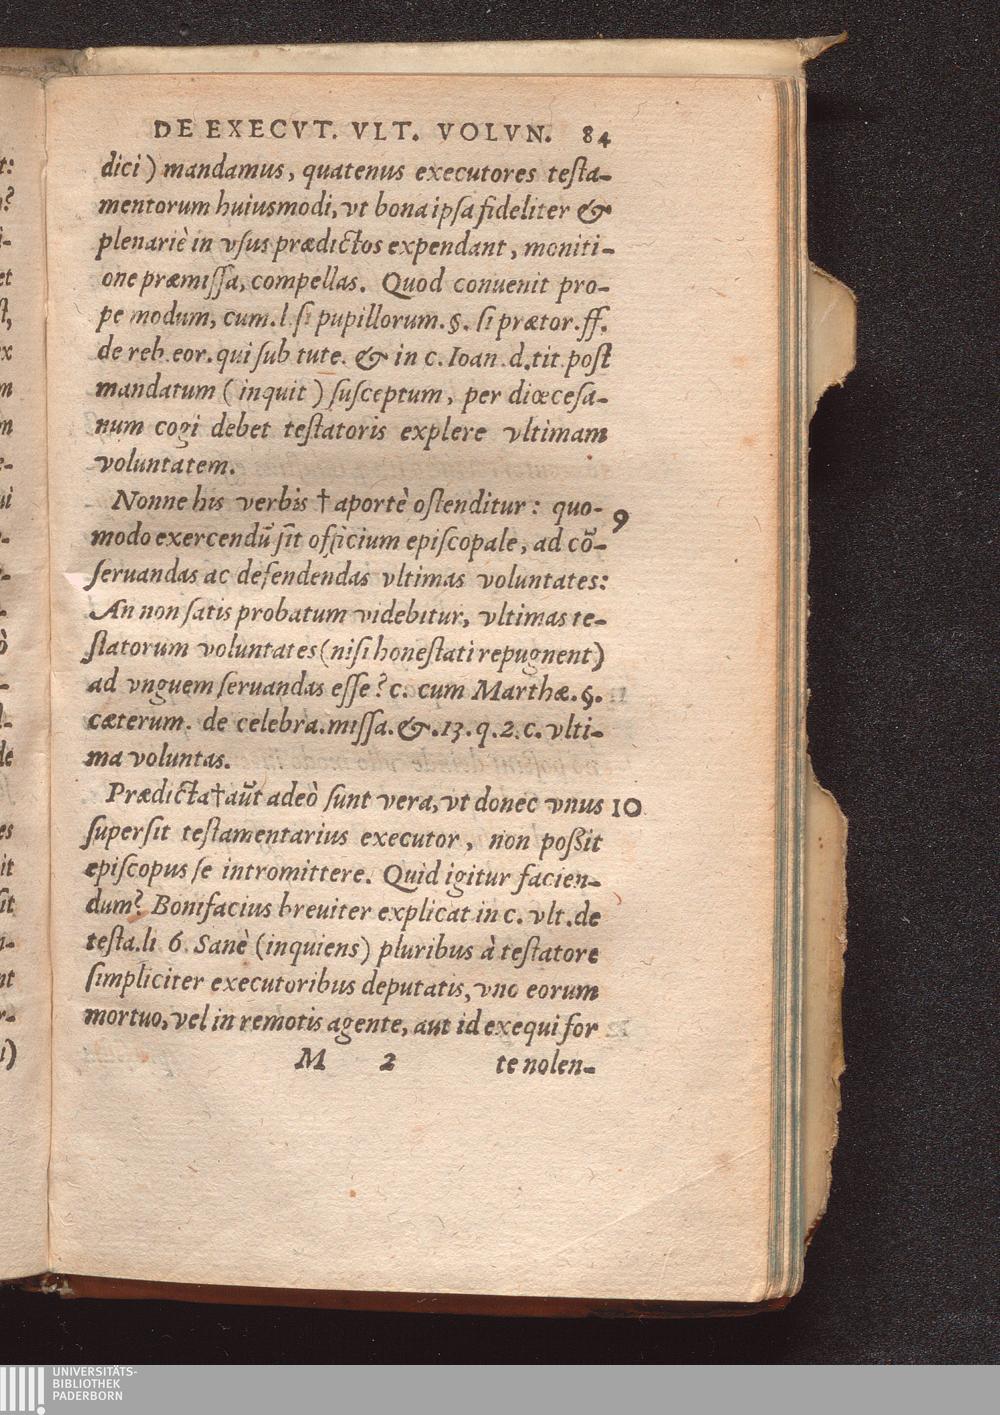 DE EXECVT. VLT. VOLVN. 84
dici) mandamus, quatenus executores testa-
mentorum huiusmodi, vt bona ipsa fideliter &
plenariè in vsus prædictos expendant, moniti-
one præmissa, compellas. Quod convenit pro-
pe modum, cum. l. si pupillorum. §. si prætor. ff.
de reb. eor. qui sub tute. & in c. Ioan. d. tit. post
mandatum (inquit) susceptum, per diœcesa-
num cogi debet testatoris explere vltimam
voluntatem.
Nonne his verbis † aportè ostenditur: quo- 9
modo exercendū sit officium episcopale, ad cō-
seruandas ac defendendas vltimas voluntates:
An non satis probatum videbitur, vltimas te-
statorum voluntates (nisi honestati repugnent)
ad vnguem seruandas esse? c. cum Marthæ. §.
cæterum. de celebra. missa. &. 13. q. 2. c. vlti-
ma voluntas.
Prædicta † aūt adeò sunt vera, vt donec vnus 10
supersit testamentarius executor, non possit
episcopus se intromittere. Quid igitur facien-
dum? Bonifacius breuiter explicat in c. vlt. de
testa. li 6. Sanè (inquiens) pluribus à testatore
simpliciter executoribus deputatis, vno eorum
mortuo, vel in remotis agente, aut id exequi for
M 2 te nolen-
UNIVERSITÄTS-
BIBLIOTHEK
PADERBORN